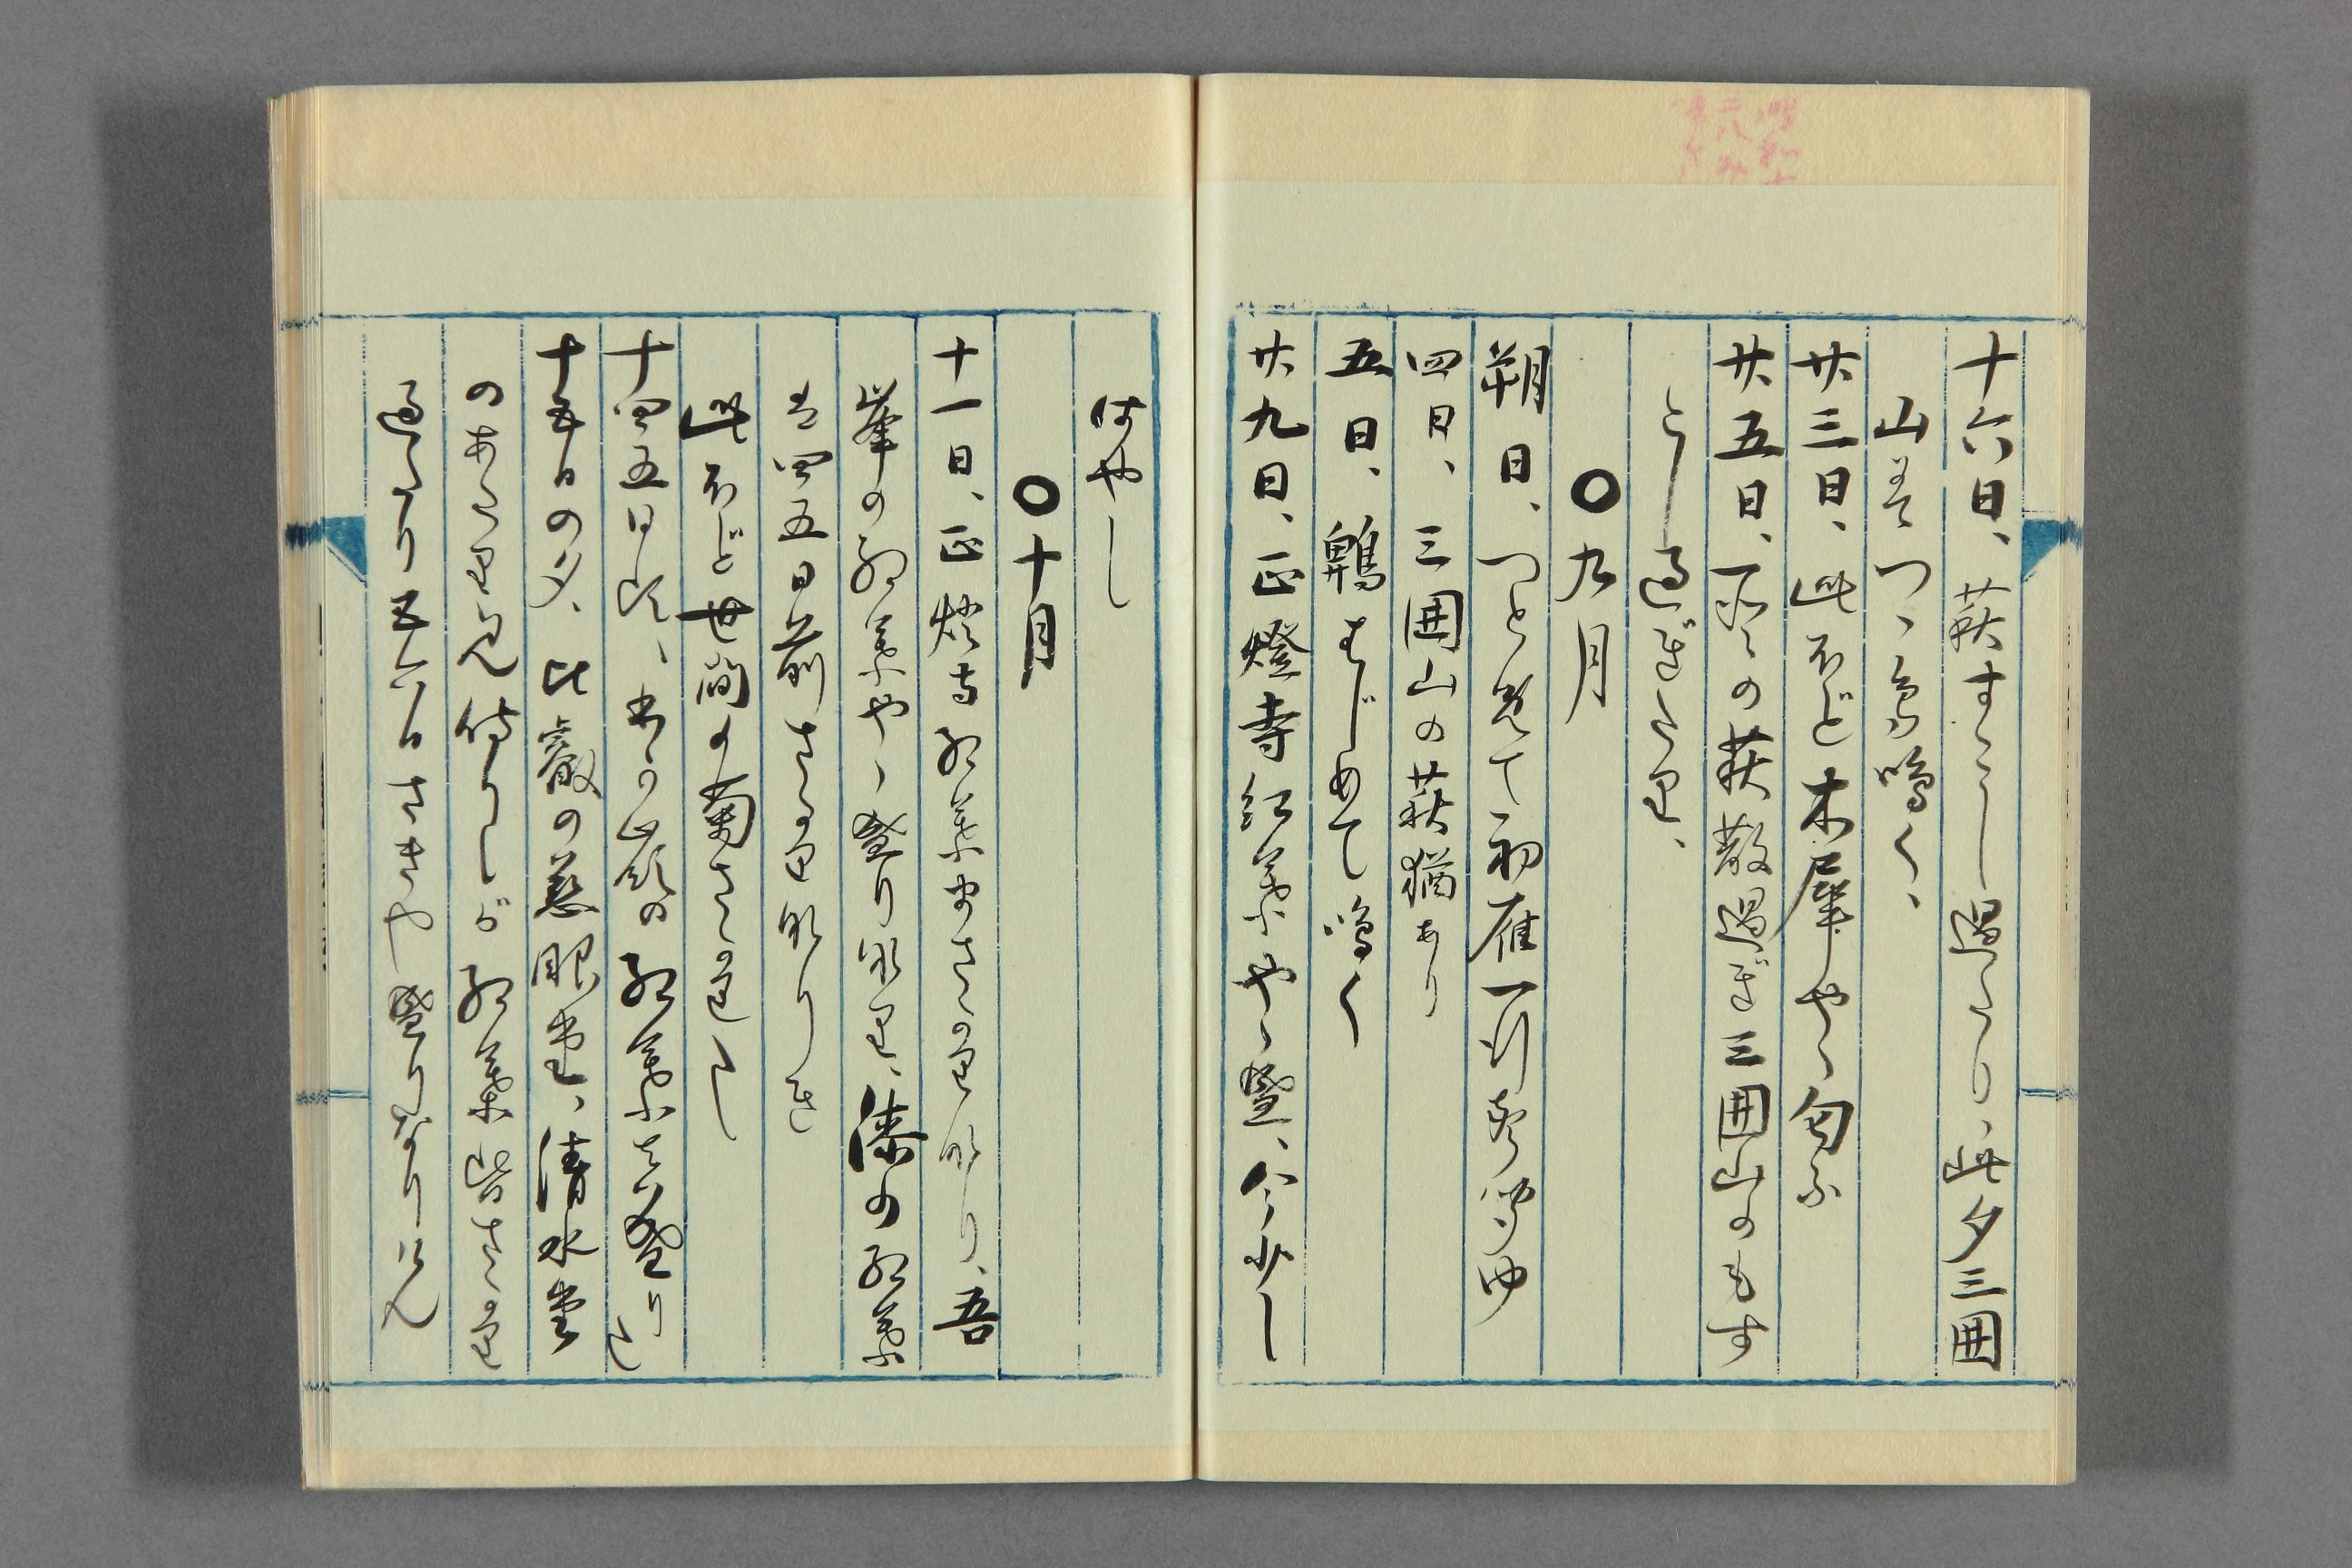 十六日、萩すこし過たり、此夕三囲
山にてつゝ鳥鳴く、
廿三日、此ほど木犀やゝ匂ふ
廿五日、所々の萩散過ぎ三囲山のもす
こし過ぎたり、
〇九月
朔日、つとめて初雁一行声聞ゆ
四日、三囲山の萩猶あり
五日、鶤はじめて鳴く
廿九日、正燈寺紅葉やゝ盛、今少し
はやし
〇十月
十一日、正燈寺紅葉まさかり也、吾
峯の紅葉やゝ盛り也、漆の紅葉
は四五日前さかりなりき
此ほど世間の菊さかりたし
十四五日頃、の紅葉は盛りに
十五日の夕、比叡の慈眼堂、清水堂
のあたり見侍りしが紅葉皆さかり
過たり五六日さきや盛りなりけん